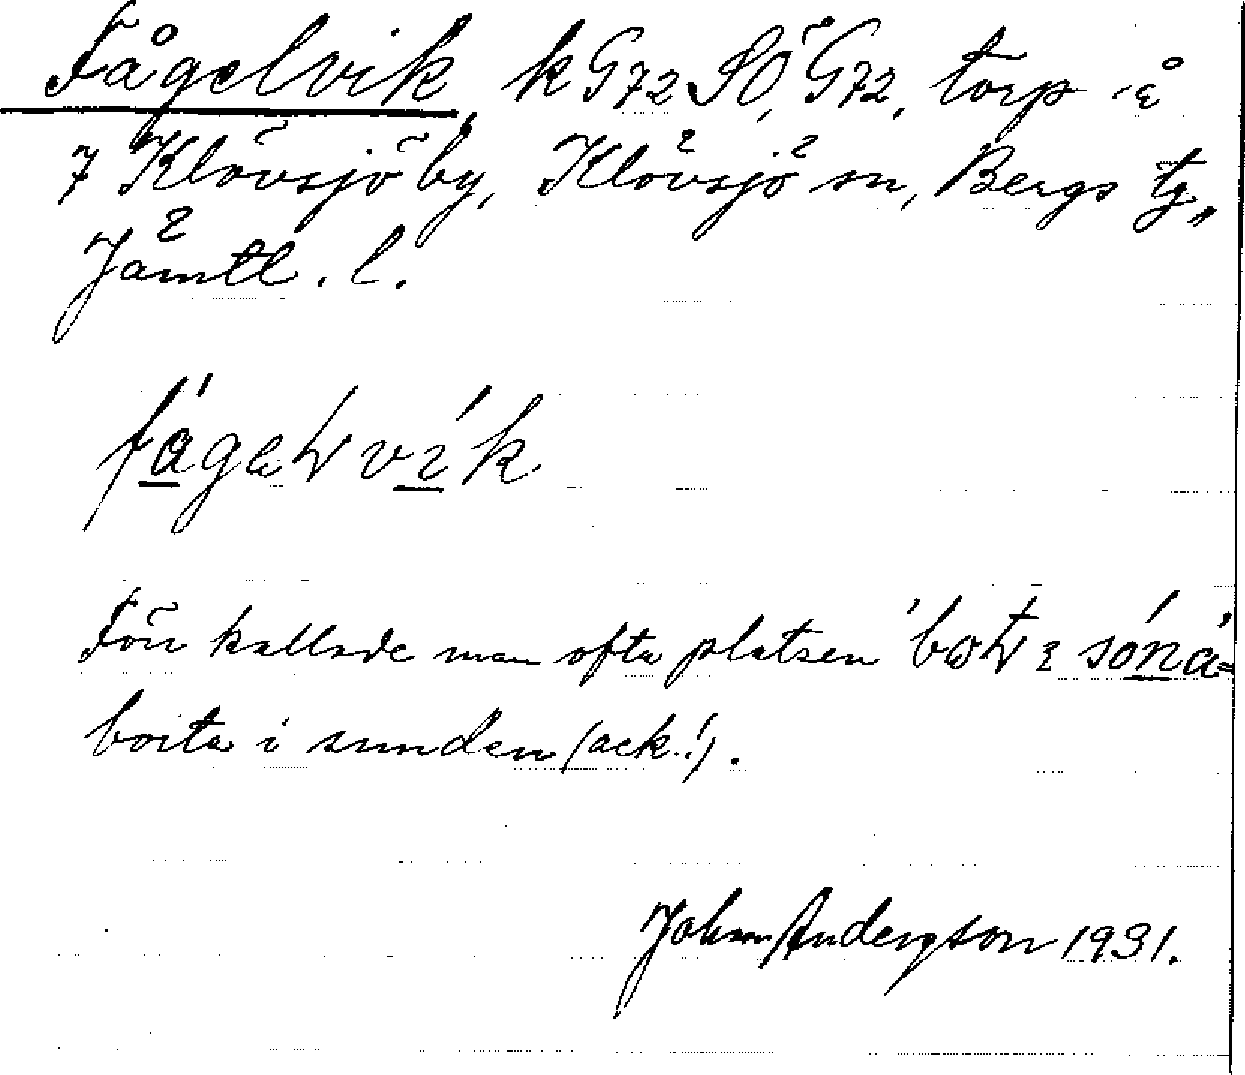 Fågelvik, k G72 SÖ, G72, torp å
7 Klövsjö by, Klövsjö sn, Bergs tg,
Jämtl. l.
Förr kallade man ofta platsen
borta i sunden (ack.!).
Johan Andersson 1931.